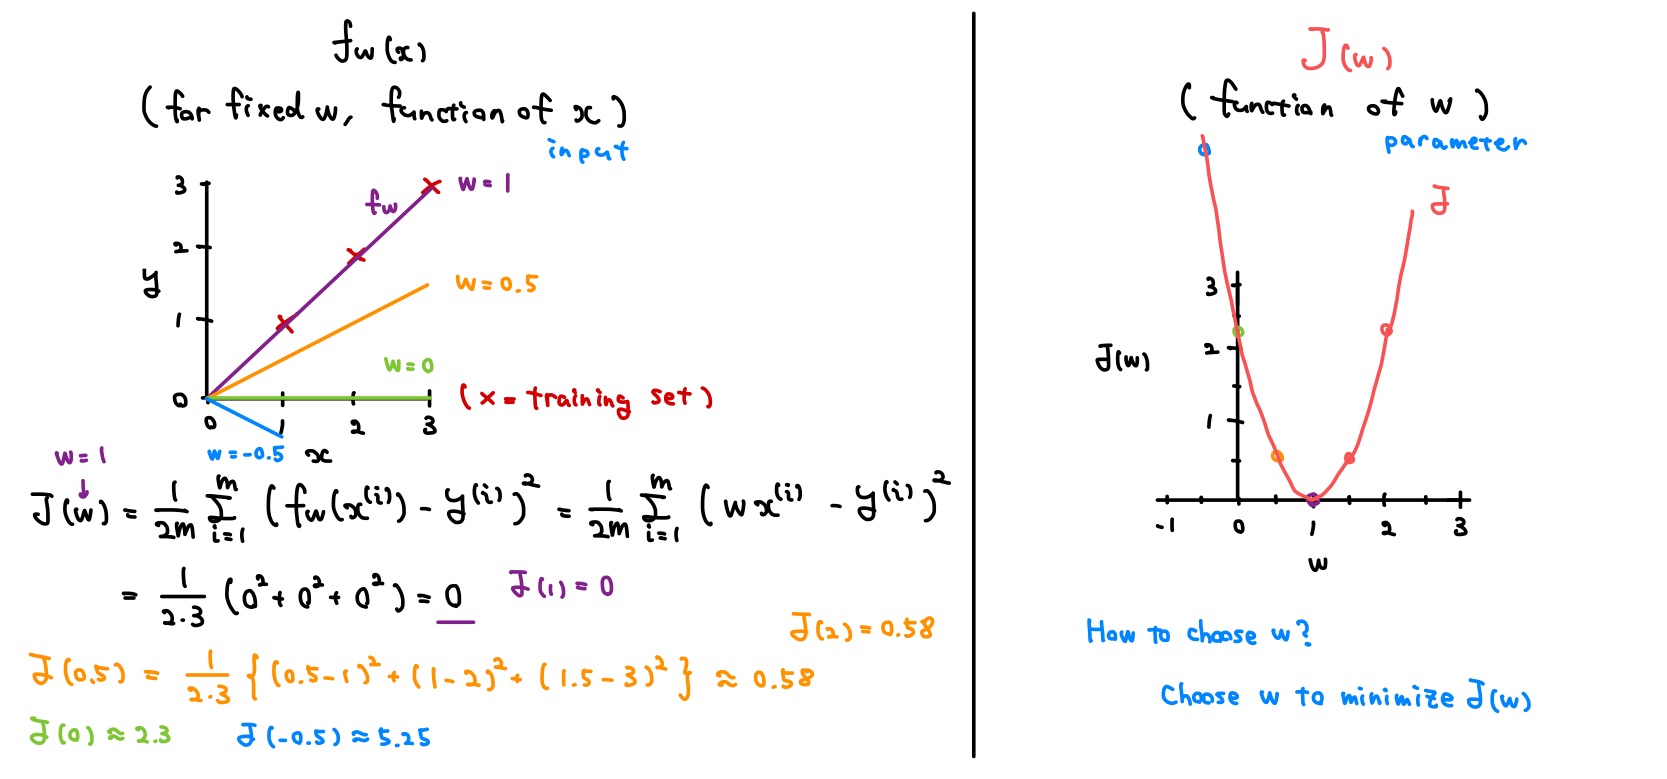 fw(x)
(for fixed w, function of x)
input
3
2
1
0
y
fw
w=1
w=0.5
w=0
(x = training set)
0 1 2 3
w=-0.5 x
w=1
↓
J(w) = 1/2m Σ_{i=1}^{m} (fw(x^(i)) - y^(i))² = 1/2m Σ_{i=1}^{m} (wx^(i) - y^(i))²
= 1/2·3 (0² + 0² + 0²) = 0 J(1) = 0
J(2) = 0.58
J(0.5) = 1/2·3 {(0.5-1)² + (1-2)² + (1.5-3)²} ≈ 0.58
J(0) ≈ 2.3 J(-0.5) ≈ 5.25
J(w)
(function of w)
parameter
J
3
2
1
J(w)
-1 0 1 2 3
w
How to choose w?
Choose w to minimize J(w)